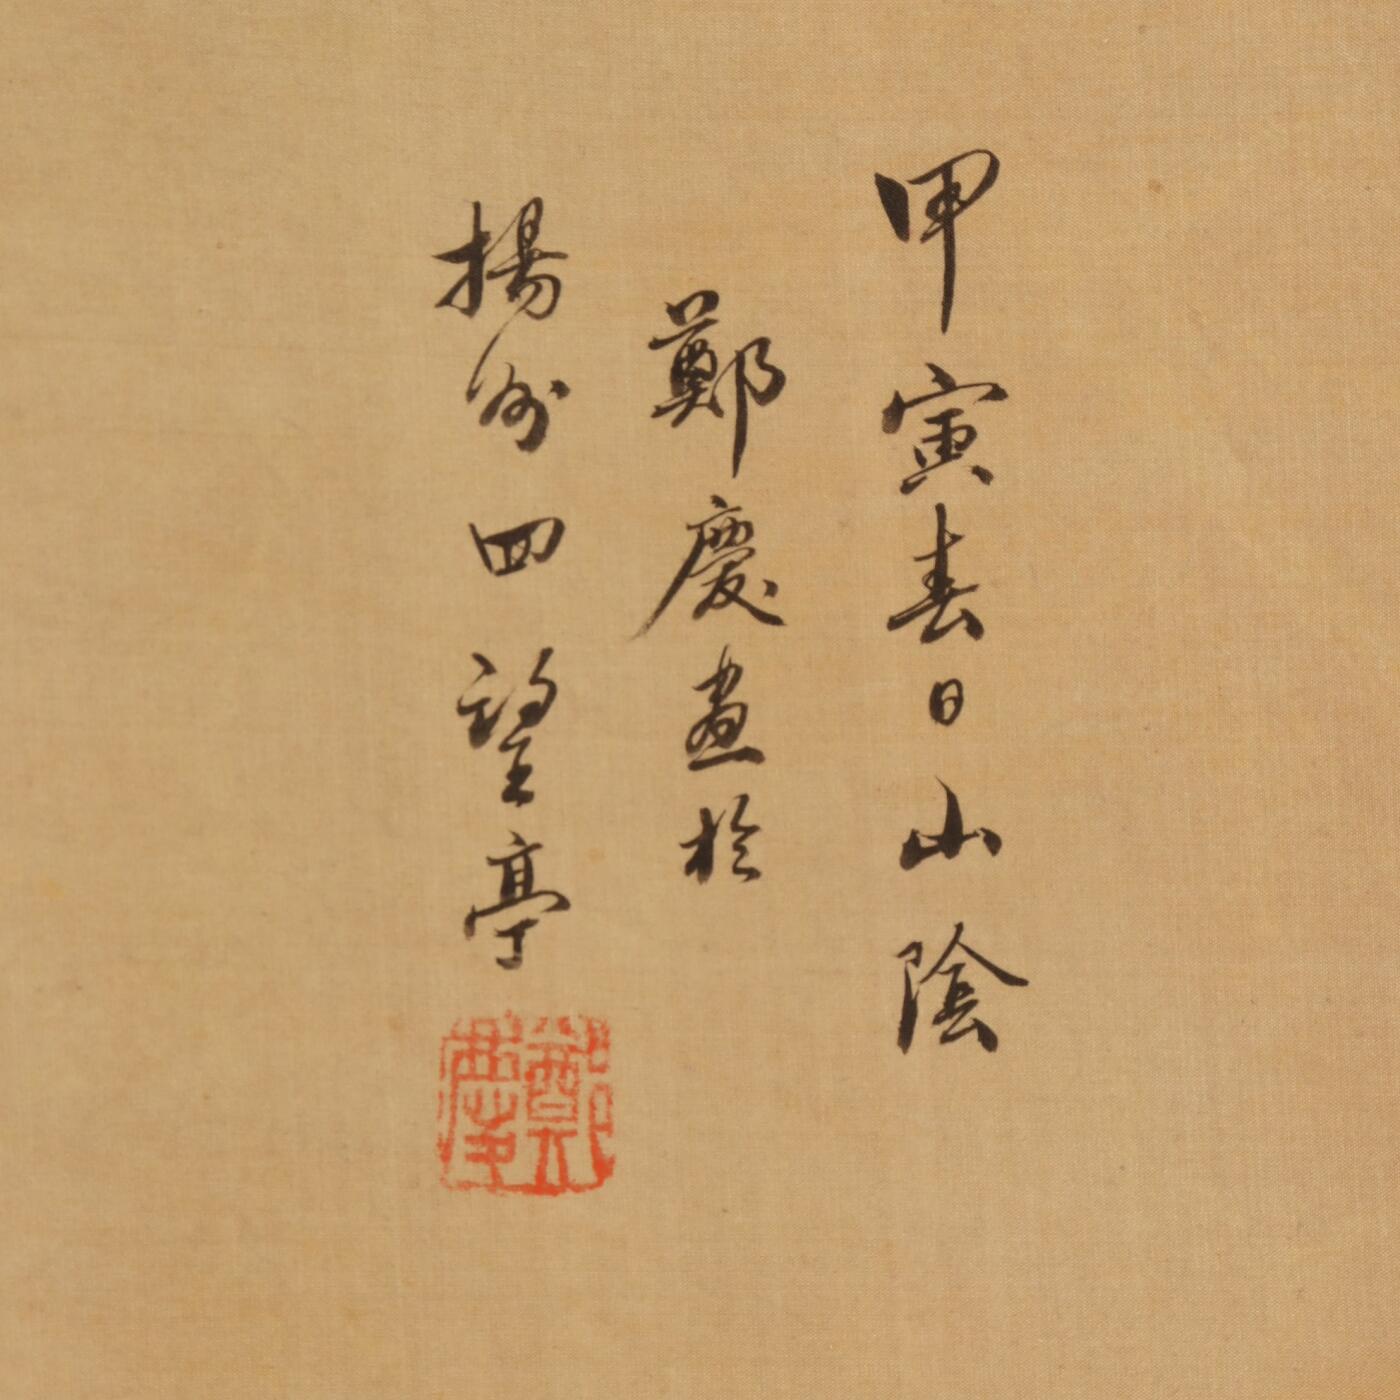 甲寅春日山陰
鄭慶畫於
揚州四望亭
鄭慶